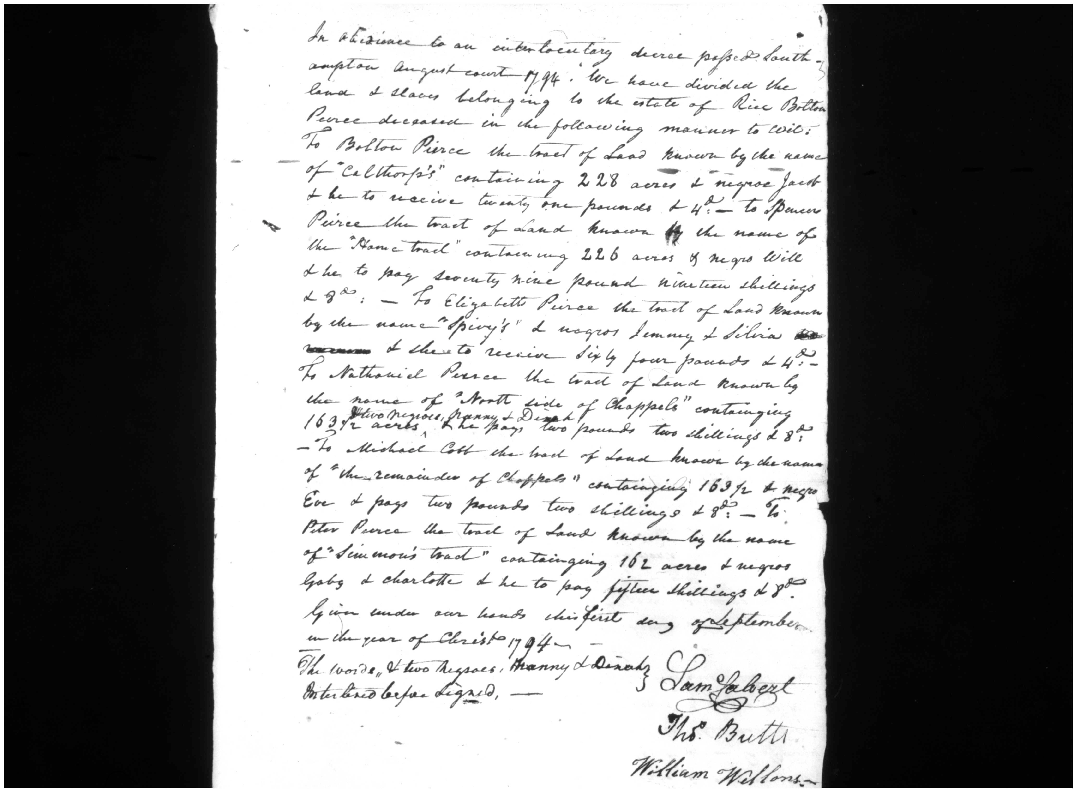 In obedience to an interlocutary decree passed South-
ampton August court 1794. We have divided the
land & slaves belonging to the estate of Rice Bolton
Peirce deceased in the following manner to wit:
To Bolton Pierce the tract of Land known by the name
of "Calthorp's" containing 228 acres & negroe Jacob
& he to receive twenty one pounds & 4d: — to Spencer
Peirce the tract of Land known by the name of
the "Home tract" containing 226 acres & negro Will
& he to pay seventy nine pound nineteen shillings
& 8d: — To Elizabeth Pierce the tract of Land known
by the name "Spivy's" & negros Jemmey & Silvia
& she to receive Sixty four pounds & 4d: —
To Nathaniel Peirce the tract of Land known by
the name of "North side of Chappels" containging
& two negroes, Nanny & Dinah
163 1/2 acres ^ & he pays two pounds two shillings & 8d:
— To Michael Cobb the tract of Land known by the name
of "the remainder of Chappels" containging 163 1/2 & negro
Eve & pays two pounds two shillings & 8d: — To
Peter Peirce the tract of Land known by the name
of "Simmon's tract" containging 162 acres & negros
Gaby & Charlotte & he to pay fifteen shillings & 8d.
Given under our hands this first day of September
in the year of Christ 1794 —
The words, & two Negroes, Nanny & Dinah }
Interlined before Signed, —
Sam Calvert
Thos. Butts
William Wellons —